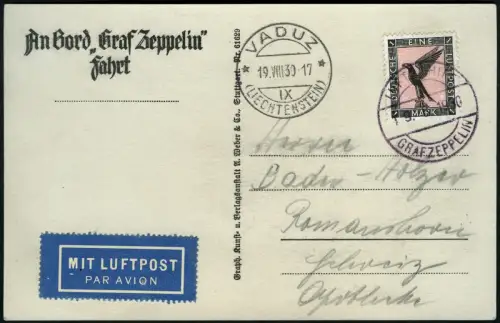 An Bord „Graf Zeppelin“
Fahrt
MIT LUFTPOST
PAR AVION
Graph. Kunst- u. Verlagsanstalt A. Weber & Co., Stuttgart Nr. 61629
VADUZ
19.VIII 30-17
IX
(LIECHTENSTEIN)
EINE
DEUTSCHE LUFTPOST
MARK
GRAF ZEPPELIN
Herrn
Bader-Holzer
Romanshorn
Schweiz
Apotheke